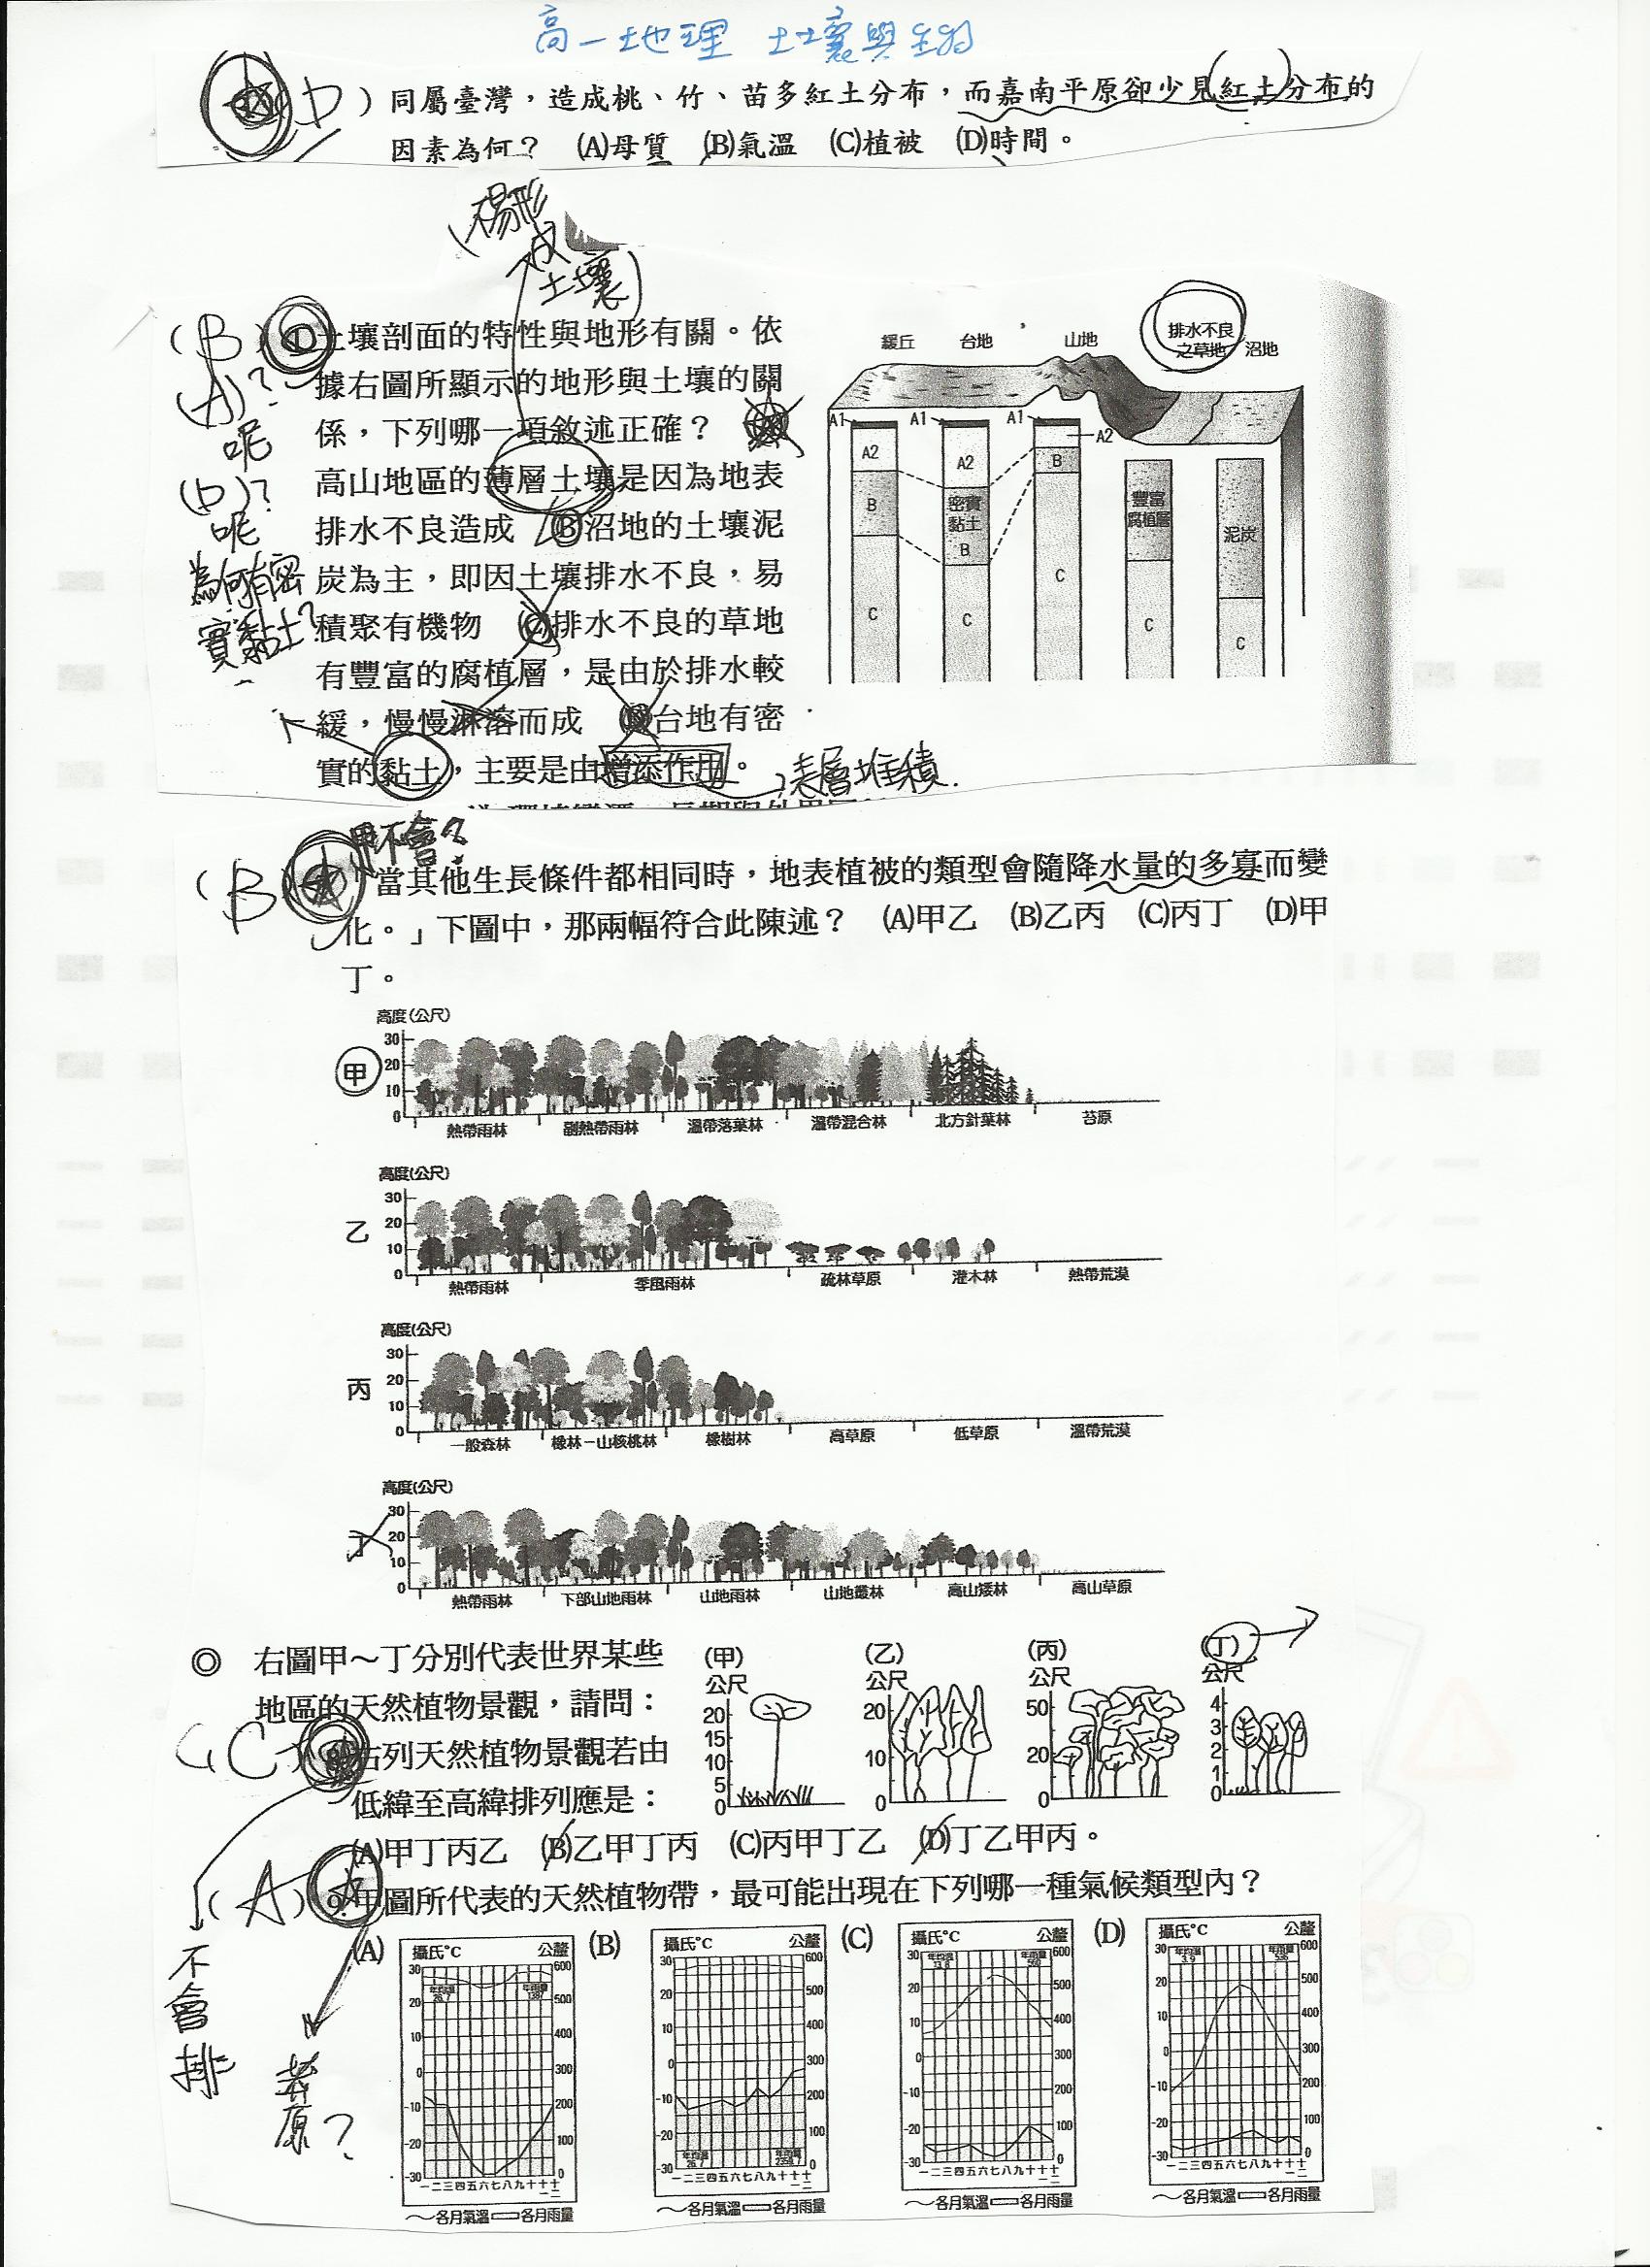 高一地理 土壤與生物
(D) 同屬臺灣,造成桃、竹、苗多紅土分布,而嘉南平原卻少見紅土分布的
因素為何? (A)母質 (B)氣溫 (C)植被 (D)時間。
(楊形
成
土壤)
(B) 土壤剖面的特性與地形有關。依
據右圖所顯示的地形與土壤的關
係,下列哪一項敘述正確? (A)
高山地區的薄層土壤是因為地表
排水不良造成 (B)沼地的土壤泥
炭為主,即因土壤排水不良,易
積聚有機物 (C)排水不良的草地
有豐富的腐植層,是由於排水較
緩,慢慢淋溶而成 (D)台地有密
實的黏土,主要是由增添作用。
(A)?
呢
(D)?
呢
為何有密
實黏土?
表層堆積.
緩丘 台地 山地 排水不良
之草地 沼地
A1 A1 A1
A2 A2 A2
B 密實
黏土
B B 豐富
腐植層 泥炭
C C C C C
甲不會?
(B) 「當其他生長條件都相同時,地表植被的類型會隨降水量的多寡而變
化。」下圖中,那兩幅符合此陳述? (A)甲乙 (B)乙丙 (C)丙丁 (D)甲
丁。
高度(公尺)
甲
30
20
10
0
熱帶雨林 副熱帶雨林 溫帶落葉林 溫帶混合林 北方針葉林 苔原
高度(公尺)
乙
30
20
10
0
熱帶雨林 季風雨林 疏林草原 灌木林 熱帶荒漠
高度(公尺)
丙
30
20
10
0
一般森林 橡林-山核桃林 橡樹林 高草原 低草原 溫帶荒漠
高度(公尺)
丁
30
20
10
0
熱帶雨林 下部山地雨林 山地雨林 山地叢林 高山矮林 高山草原
◎ 右圖甲~丁分別代表世界某些
地區的天然植物景觀,請問:
(C) 8.右列天然植物景觀若由
低緯至高緯排列應是:
(甲) (乙) (丙) (丁)
公尺 公尺 公尺 公尺
20 15 10 5 0
20 10 0
50 20 0
4 3 2 1 0
(A)甲丁丙乙 (B)乙甲丁丙 (C)丙甲丁乙 (D)丁乙甲丙。
(A) 9.甲圖所代表的天然植物帶,最可能出現在下列哪一種氣候類型內?
不
會
排
莽
原?
(A) (B) (C) (D)
攝氏°C 公釐 攝氏°C 公釐 攝氏°C 公釐 攝氏°C 公釐
30 20 10 0 -10 -20 -30
600 500 400 300 200 100 0
年均溫 26.7 年雨量 1387
一二三四五六七八九十十十
一二
~各月氣溫 各月雨量
30 20 10 0 -10 -20 -30
600 500 400 300 200 100 0
年均溫 26.7 年雨量
一二三四五六七八九十十十
一二
~各月氣溫 各月雨量
30 20 10 0 -10 -20 -30
600 500 400 300 200 100 0
年均溫 13.8 年雨量 560
一二三四五六七八九十十十
一二
~各月氣溫 各月雨量
30 20 10 0 -10 -20 -30
600 500 400 300 200 100 0
年均溫 3.9 年雨量 536
一二三四五六七八九十十十
一二
~各月氣溫 各月雨量